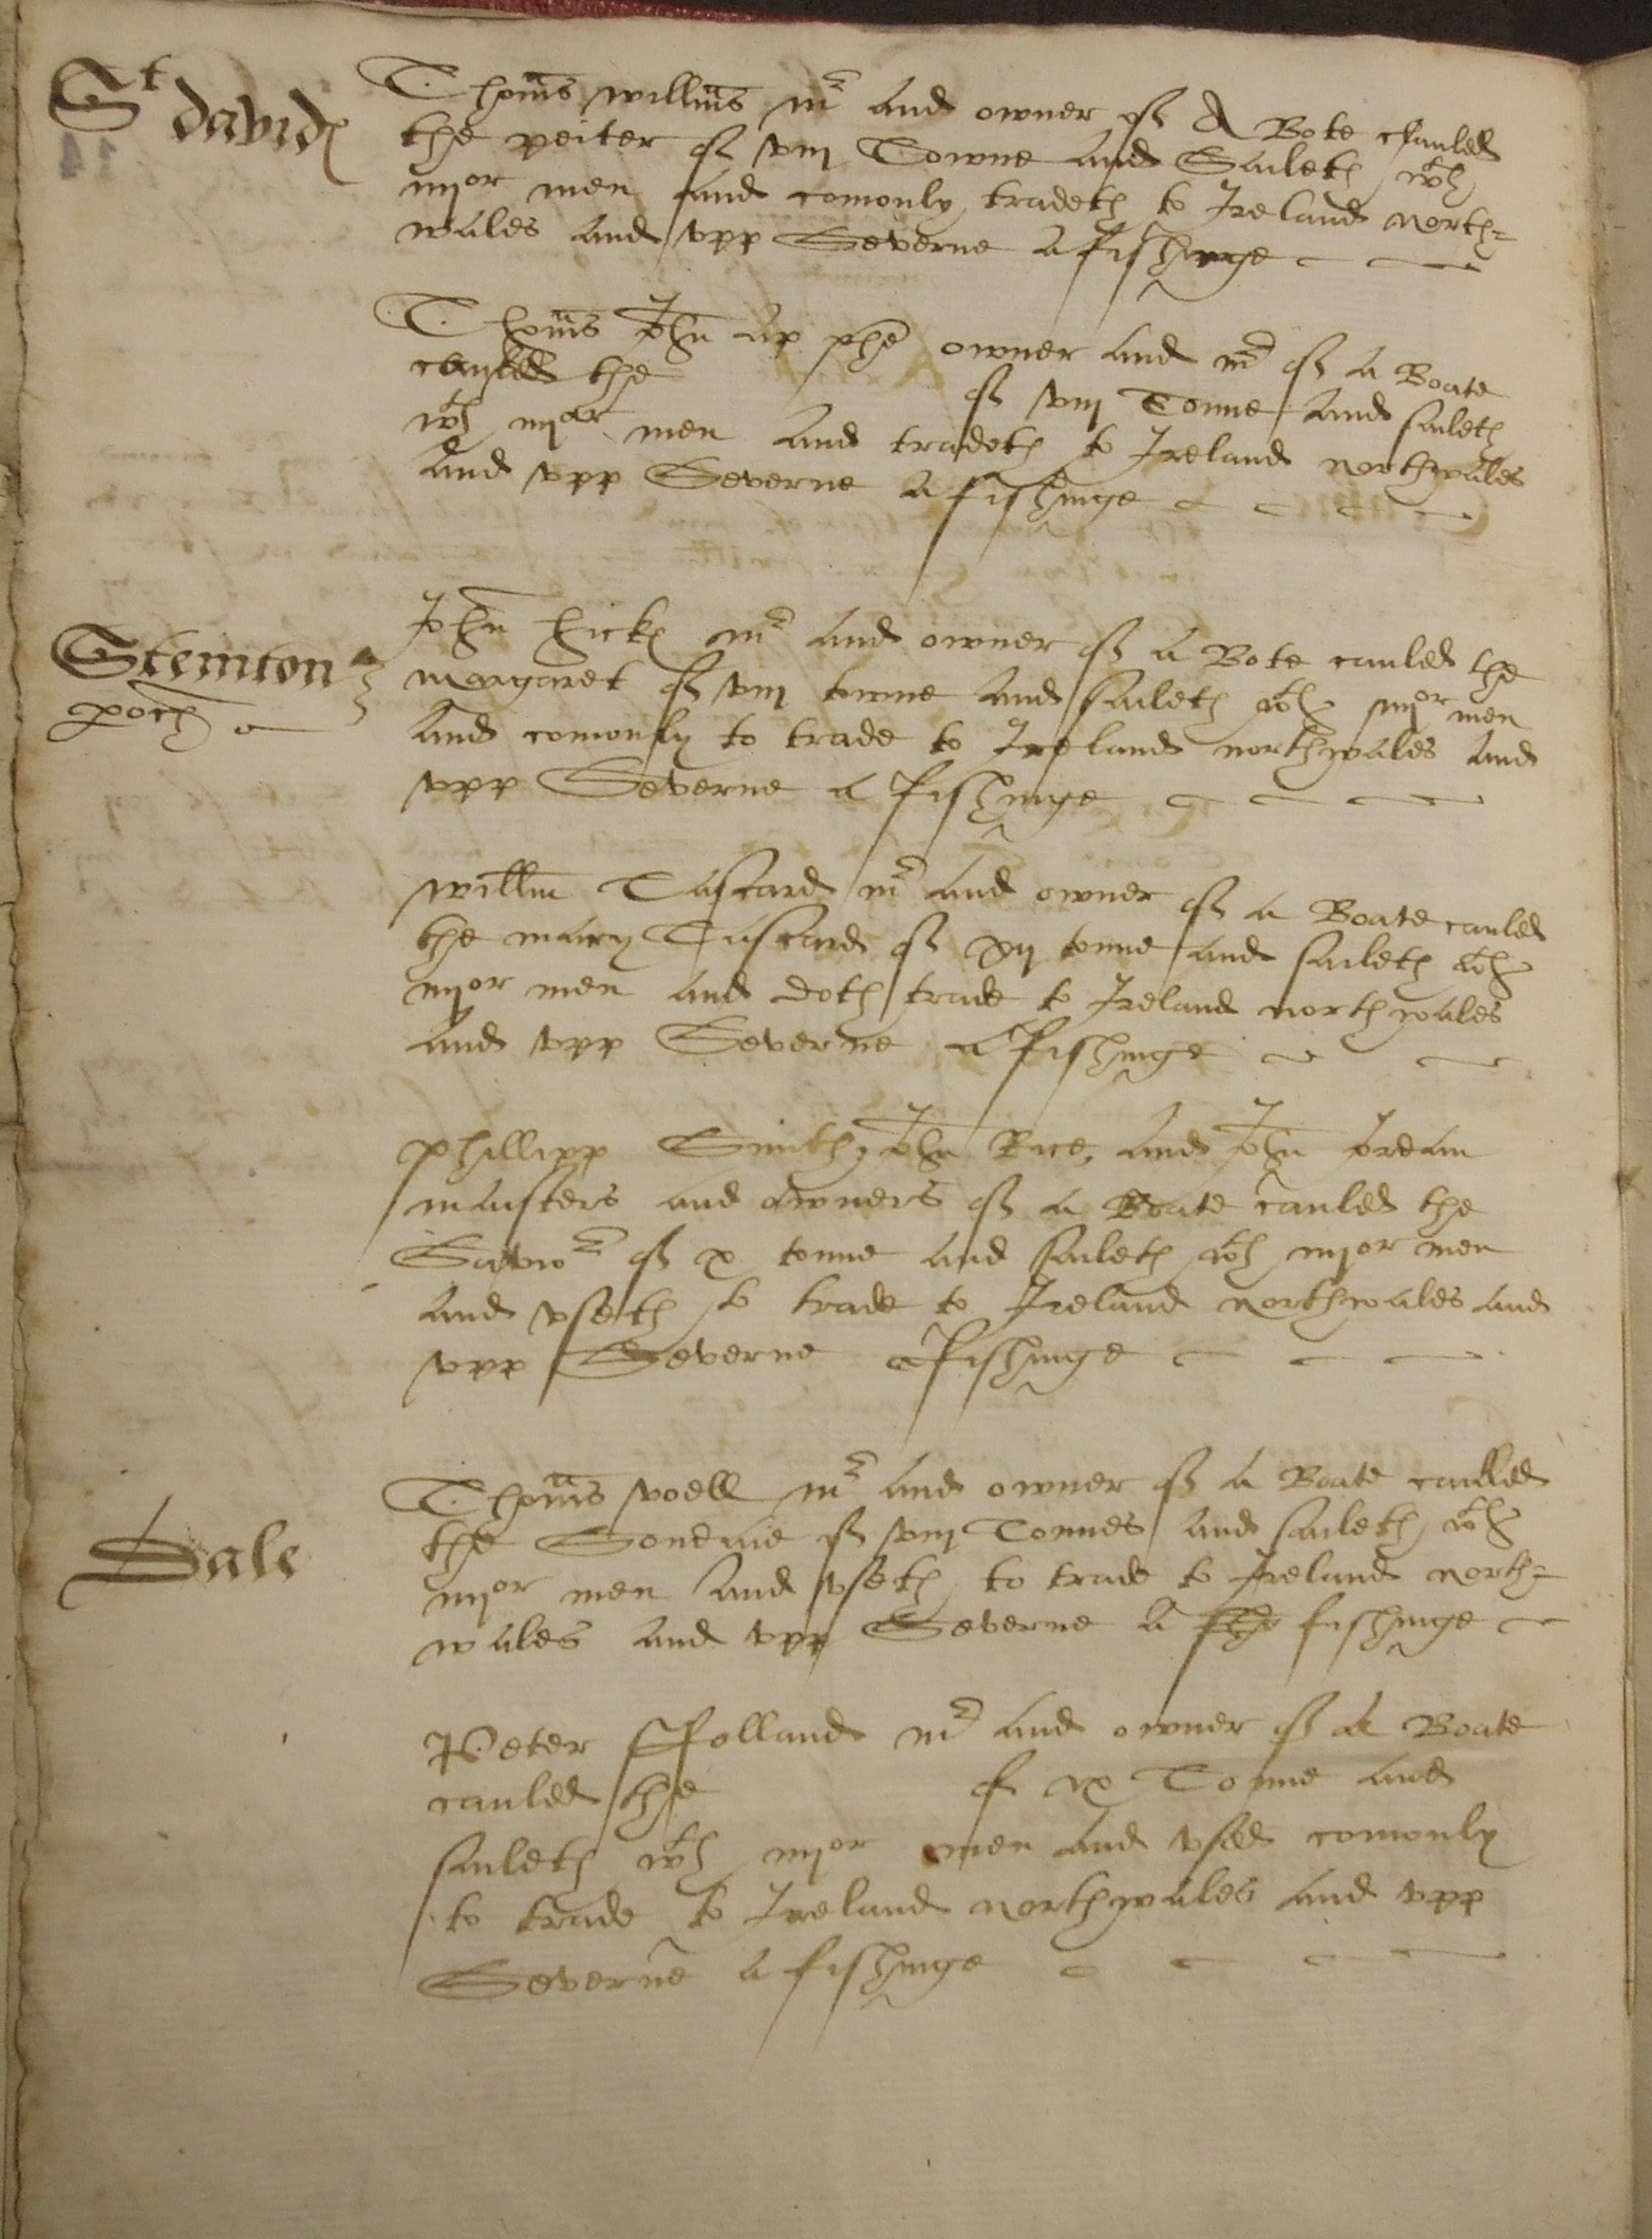 St davids
Thoms Willms mr and owner of A Bote caulled
the peiter of viij Towne and Saileth wth
iiijor men and comonly tradeth to Ireland north=
wales and vpp Severne a fishinge
Thoms John ap phe owner and mr of a Boate
caulled the of viij Tonne and saileth
wth iiijor men and tradeth to Ireland northwales
and vpp Severne a fishinge
Steinton
poch
John hicks mr and owner of a Bote cauled the
margaret of viij towne and saileth wth iiijor men
and comonly to trade to Ireland northwales and
vpp Severne a fishinge
Willm Tascard mr and owner of a Boate cauled
the mary Tascard of xij tonne and saileth wth
iiijor men and doth trade to Ireland northwales
and vpp Severne a fishinge
Phillipp Smith John Rice, and John
maisters and owners of a Boate cauled the
Savior of x tonne and saileth wth iiijor men
and vseth to trade to Ireland northwales and
vpp Severne a fishinge
Dale
Thoms voell mr and owner of a Boate caulled
the Sondaie of viij Tonnes and saileth wth
iiijor men and vseth to trade to Ireland north=
wales and vpp Severne a fishinge
Peter ffolland mr and owner of a Boate
cauled the of ix Tonne and
saileth wth iiijor men and vsed comonly
to trade to Ireland northwales and vpp
Severne a fishinge